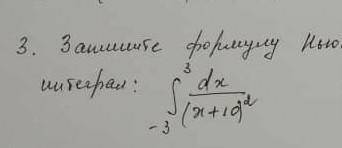 3. Запишите формулу Нью
интеграл: ∫₋₃³ dx/(x+10)²